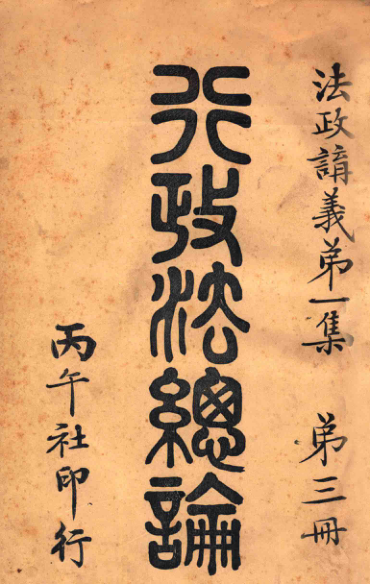 法政講義第一集 第三冊
行政法總論
丙午社印行